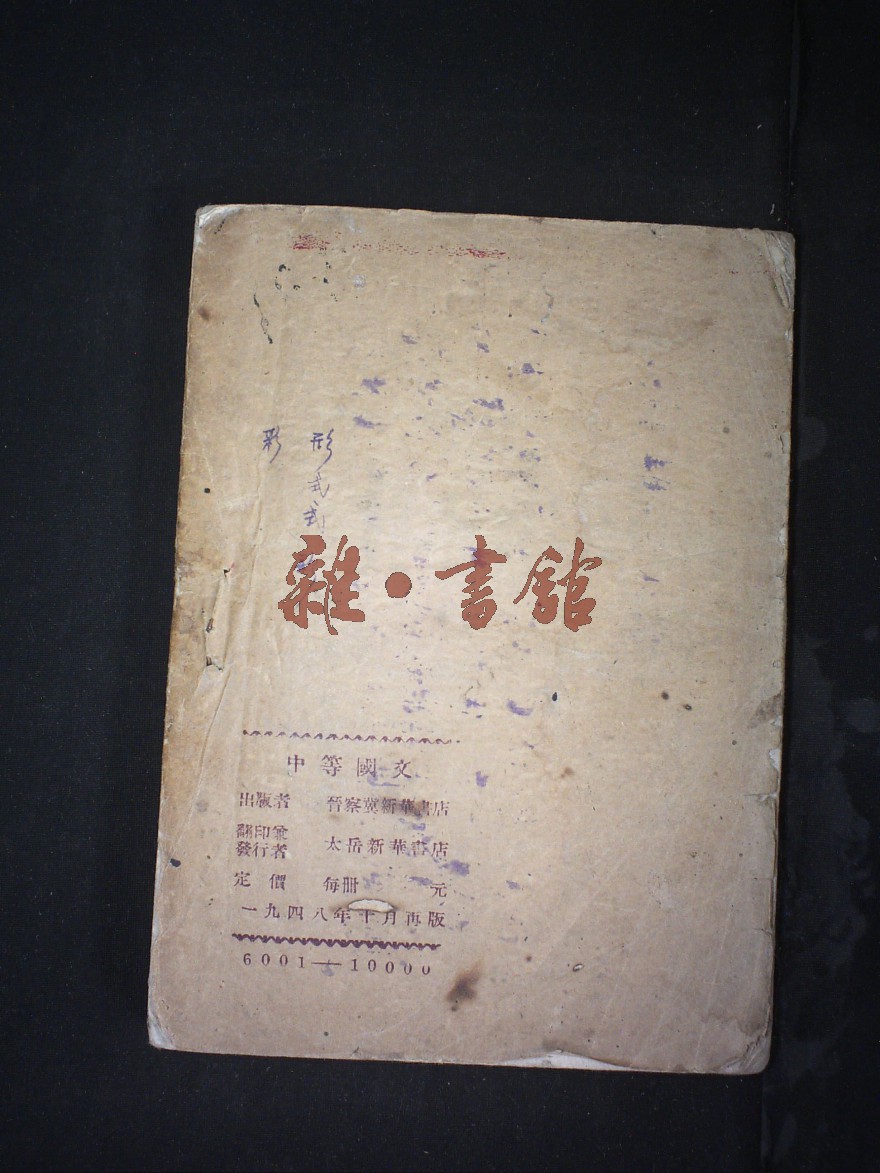 彩 形
式
式
雜·書館
中等國文
出版者 晉察冀新華書店
翻印兼
發行者 太岳新華書店
定價 每冊 元
一九四八年十月再版
6001—10000